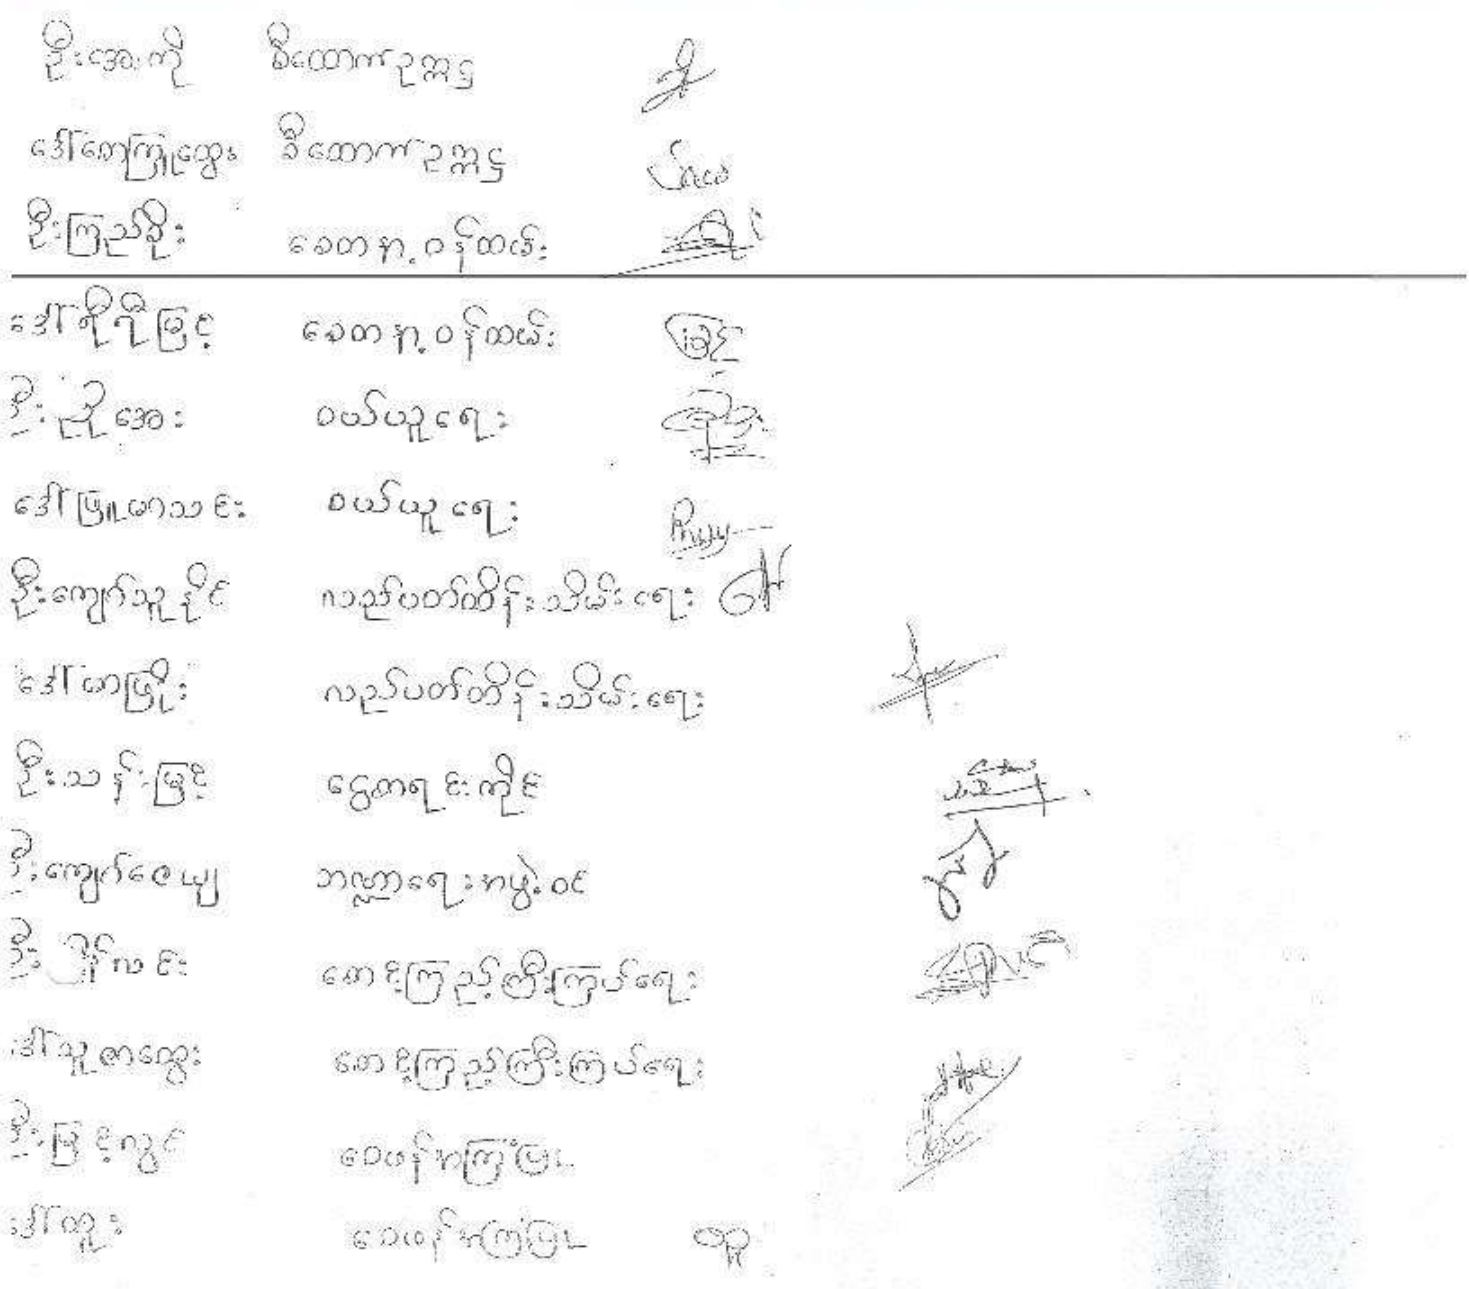 ဦးအေးကို စီထောက်ဥက္ကဋ္ဌ
ဒေါ် ထွေး စီထောက်ဥက္ကဋ္ဌ
ဦးကြည်စိုး စေတနာ့ဝန်ထမ်း
ဒေါ်ရီရီမြင့် စေတနာ့ဝန်ထမ်း
ဦးညိုအေး ဝယ်ယူရေး
ဒေါ်ဖြူမာသင်း ဝယ်ယူရေး Phyu
ဦးကျော်သူနိုင် လည်ပတ်ထိန်းသိမ်းရေး
ဒေါ်မာဖြိုး လည်ပတ်ထိန်းသိမ်းရေး
ဦးသန်းမြင့် ငွေစာရင်းကိုင်
ဦးကျော်ဇေယျ ဘဏ္ဍာရေးအဖွဲ့ဝင်
ဦး လင်း စောင့်ကြည့်ကြီးကြပ်ရေး
ဒေါ်သူဇာထွေး စောင့်ကြည့်ကြီးကြပ်ရေး
ဦးမြင့်လွင် ဝေဖန်အကြံပြု
ဒေါ်တူး ဝေဖန်အကြံပြု